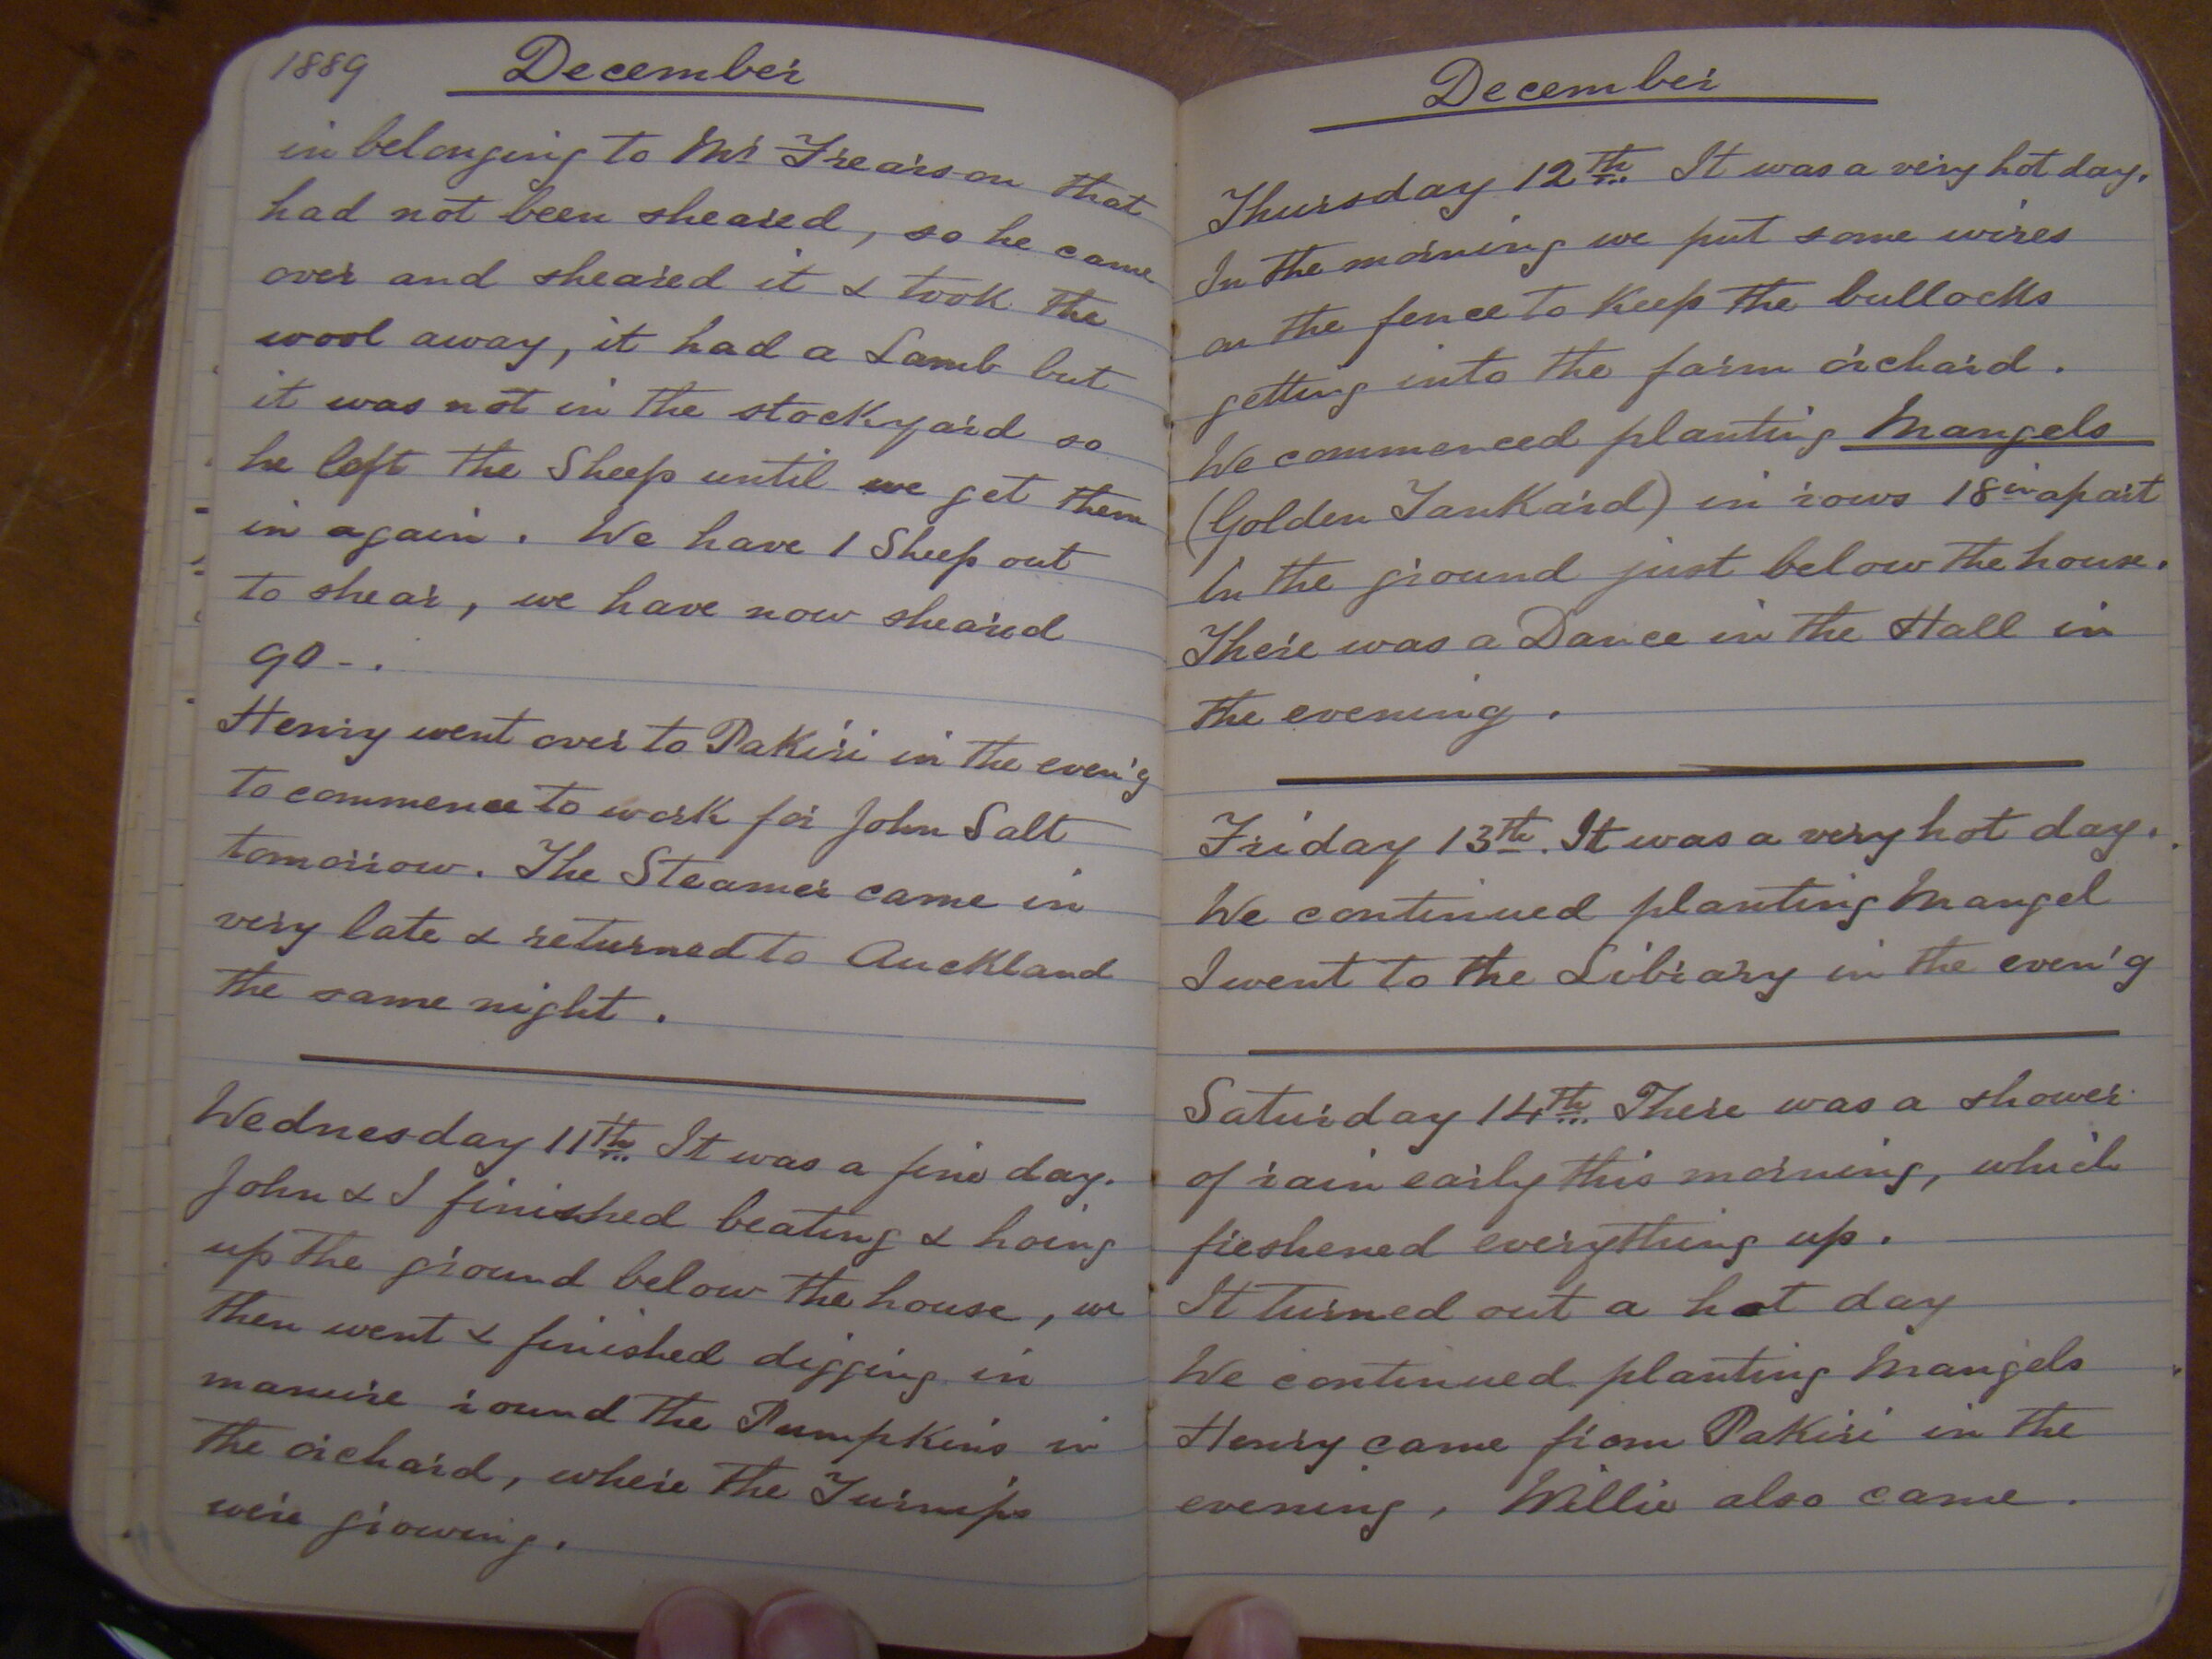 1889 December
in belonging to Mr Frearson that
had not been sheared, so he came
over and sheared it & took the
wool away, it had a Lamb but
it was not in the stockyard so
he left the Sheep until we get them
in again. We have 1 Sheep out
to shear, we have now sheared
90-.
Henry went over to Pakiri in the even'g
to commence to work for John Salt
tomorrow. The Steamer came in
very late & returned to Auckland
the same night.
Wednesday 11th It was a fine day.
John & I finished beating & hoing
up the ground below the house, we
then went & finished digging in
manure round the Pumpkins in
the orchard, where the Turnips
were growing.
December
Thursday 12th It was a very hot day.
In the morning we put some wires
on the fence to keep the bullocks
getting into the farm orchard.
We commenced planting Mangels
(Golden Tankard) in rows 18in apart
In the ground just below the house.
There was a Dance in the Hall in
the evening.
Friday 13th. It was a very hot day.
We continued planting Mangel
I went to the Library in the even'g
Saturday 14th There was a shower
of rain early this morning, which
freshened everything up.
It turned out a hot day
We continued planting Mangels
Henry came from Pakiri in the
evening, Willie also came.